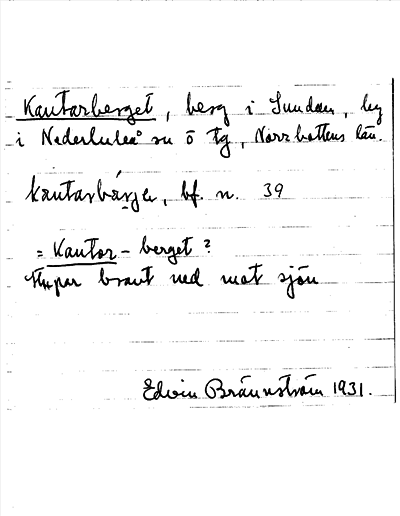 Kantarberget, berg i Sundom, by
i Nederluleå sn ö tg, Norrbottens län.
kantarbärje, bf. n. 39
= Kantor-berget?
Stupar brant ned mot sjön
Edvin Brännström 1931.